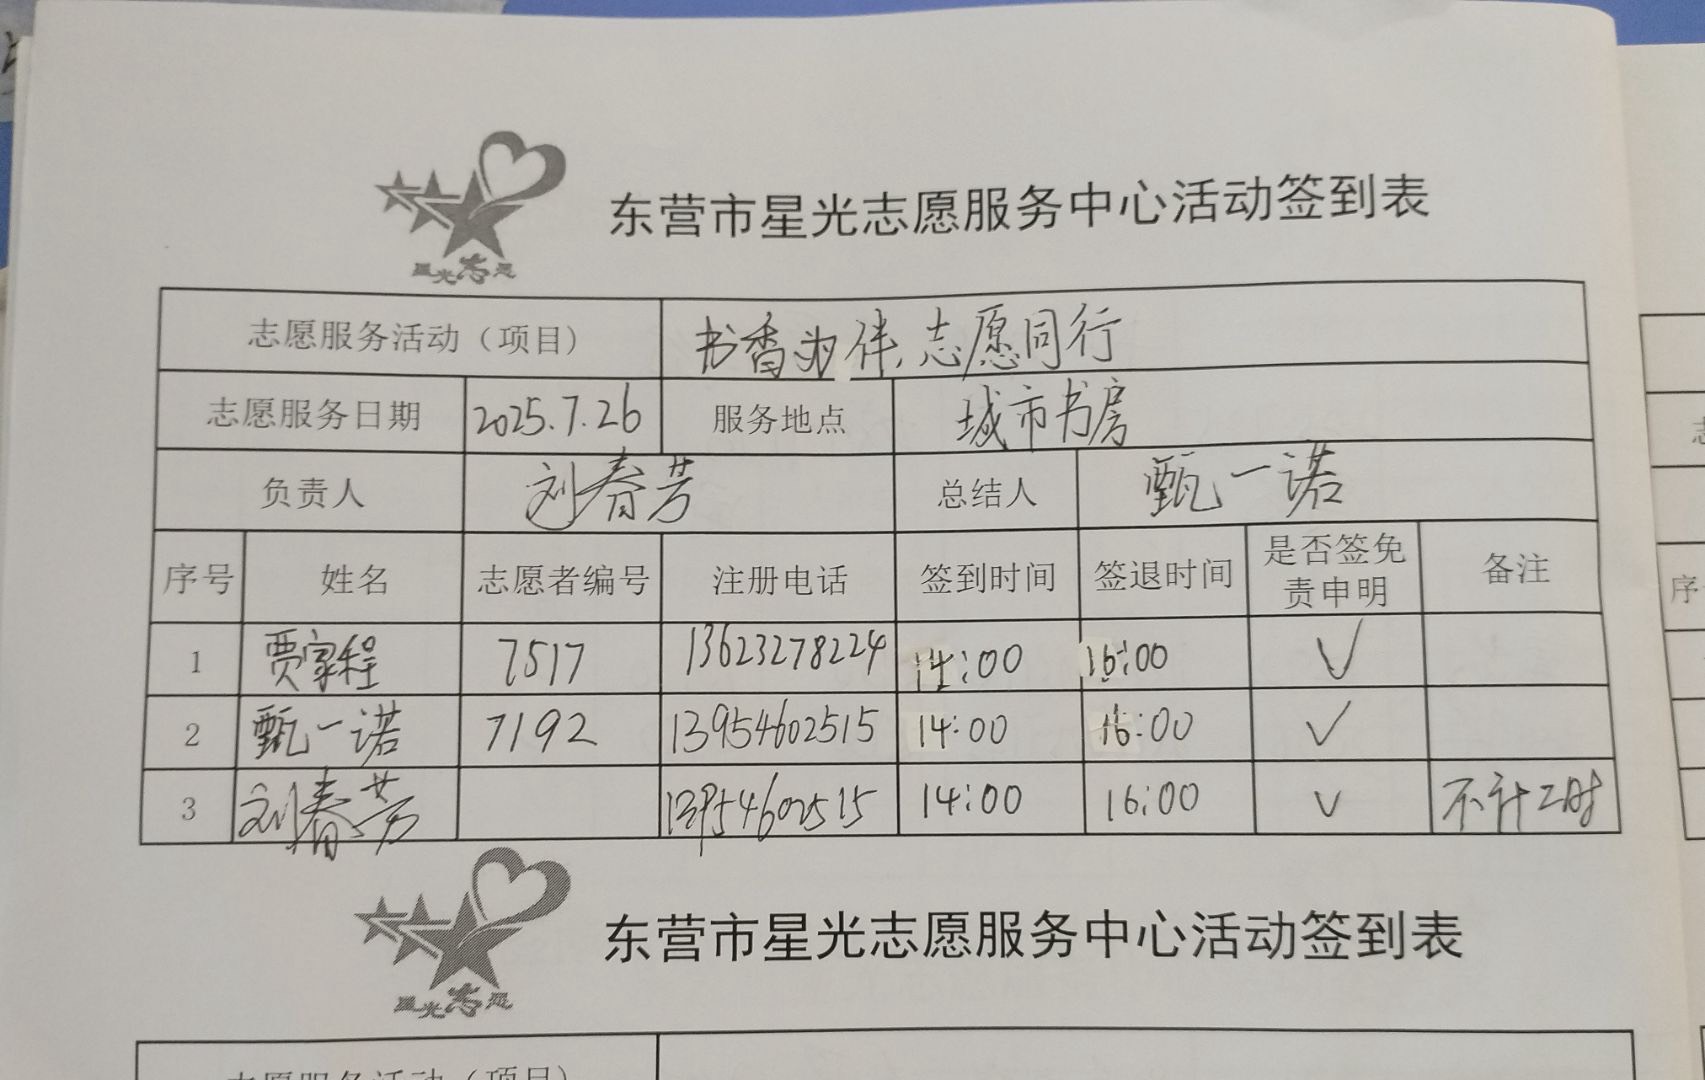 东营市星光志愿服务中心活动签到表
星光志愿
志愿服务活动（项目） 书香为伴,志愿同行
志愿服务日期 2025.7.26 服务地点 城市书房
负责人 刘春芳 总结人 甄一诺
序号 姓名 志愿者编号 注册电话 签到时间 签退时间 是否签免责申明 备注
1 贾家程 7517 13623278224 14:00 16:00 √
2 甄一诺 7192 13954602515 14:00 16:00 √
3 刘春芳 13954602515 14:00 16:00 √ 不计工时
东营市星光志愿服务中心活动签到表
星光志愿
志愿服务活动（项目）